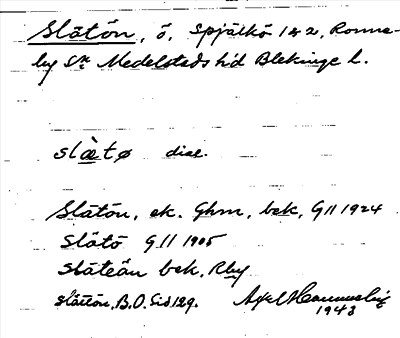 Slätön, ö, Spjälkö 1 & 2, Ronne-
by Sn Medelstads hd Blekinge l.
slæ̀tø dial.
Slätön, ek. Ghm, bek, G II 1924
Slätö G II 1905
Släteän bek, Rby
Slätön, B.O. Sid 129. Axel
1943